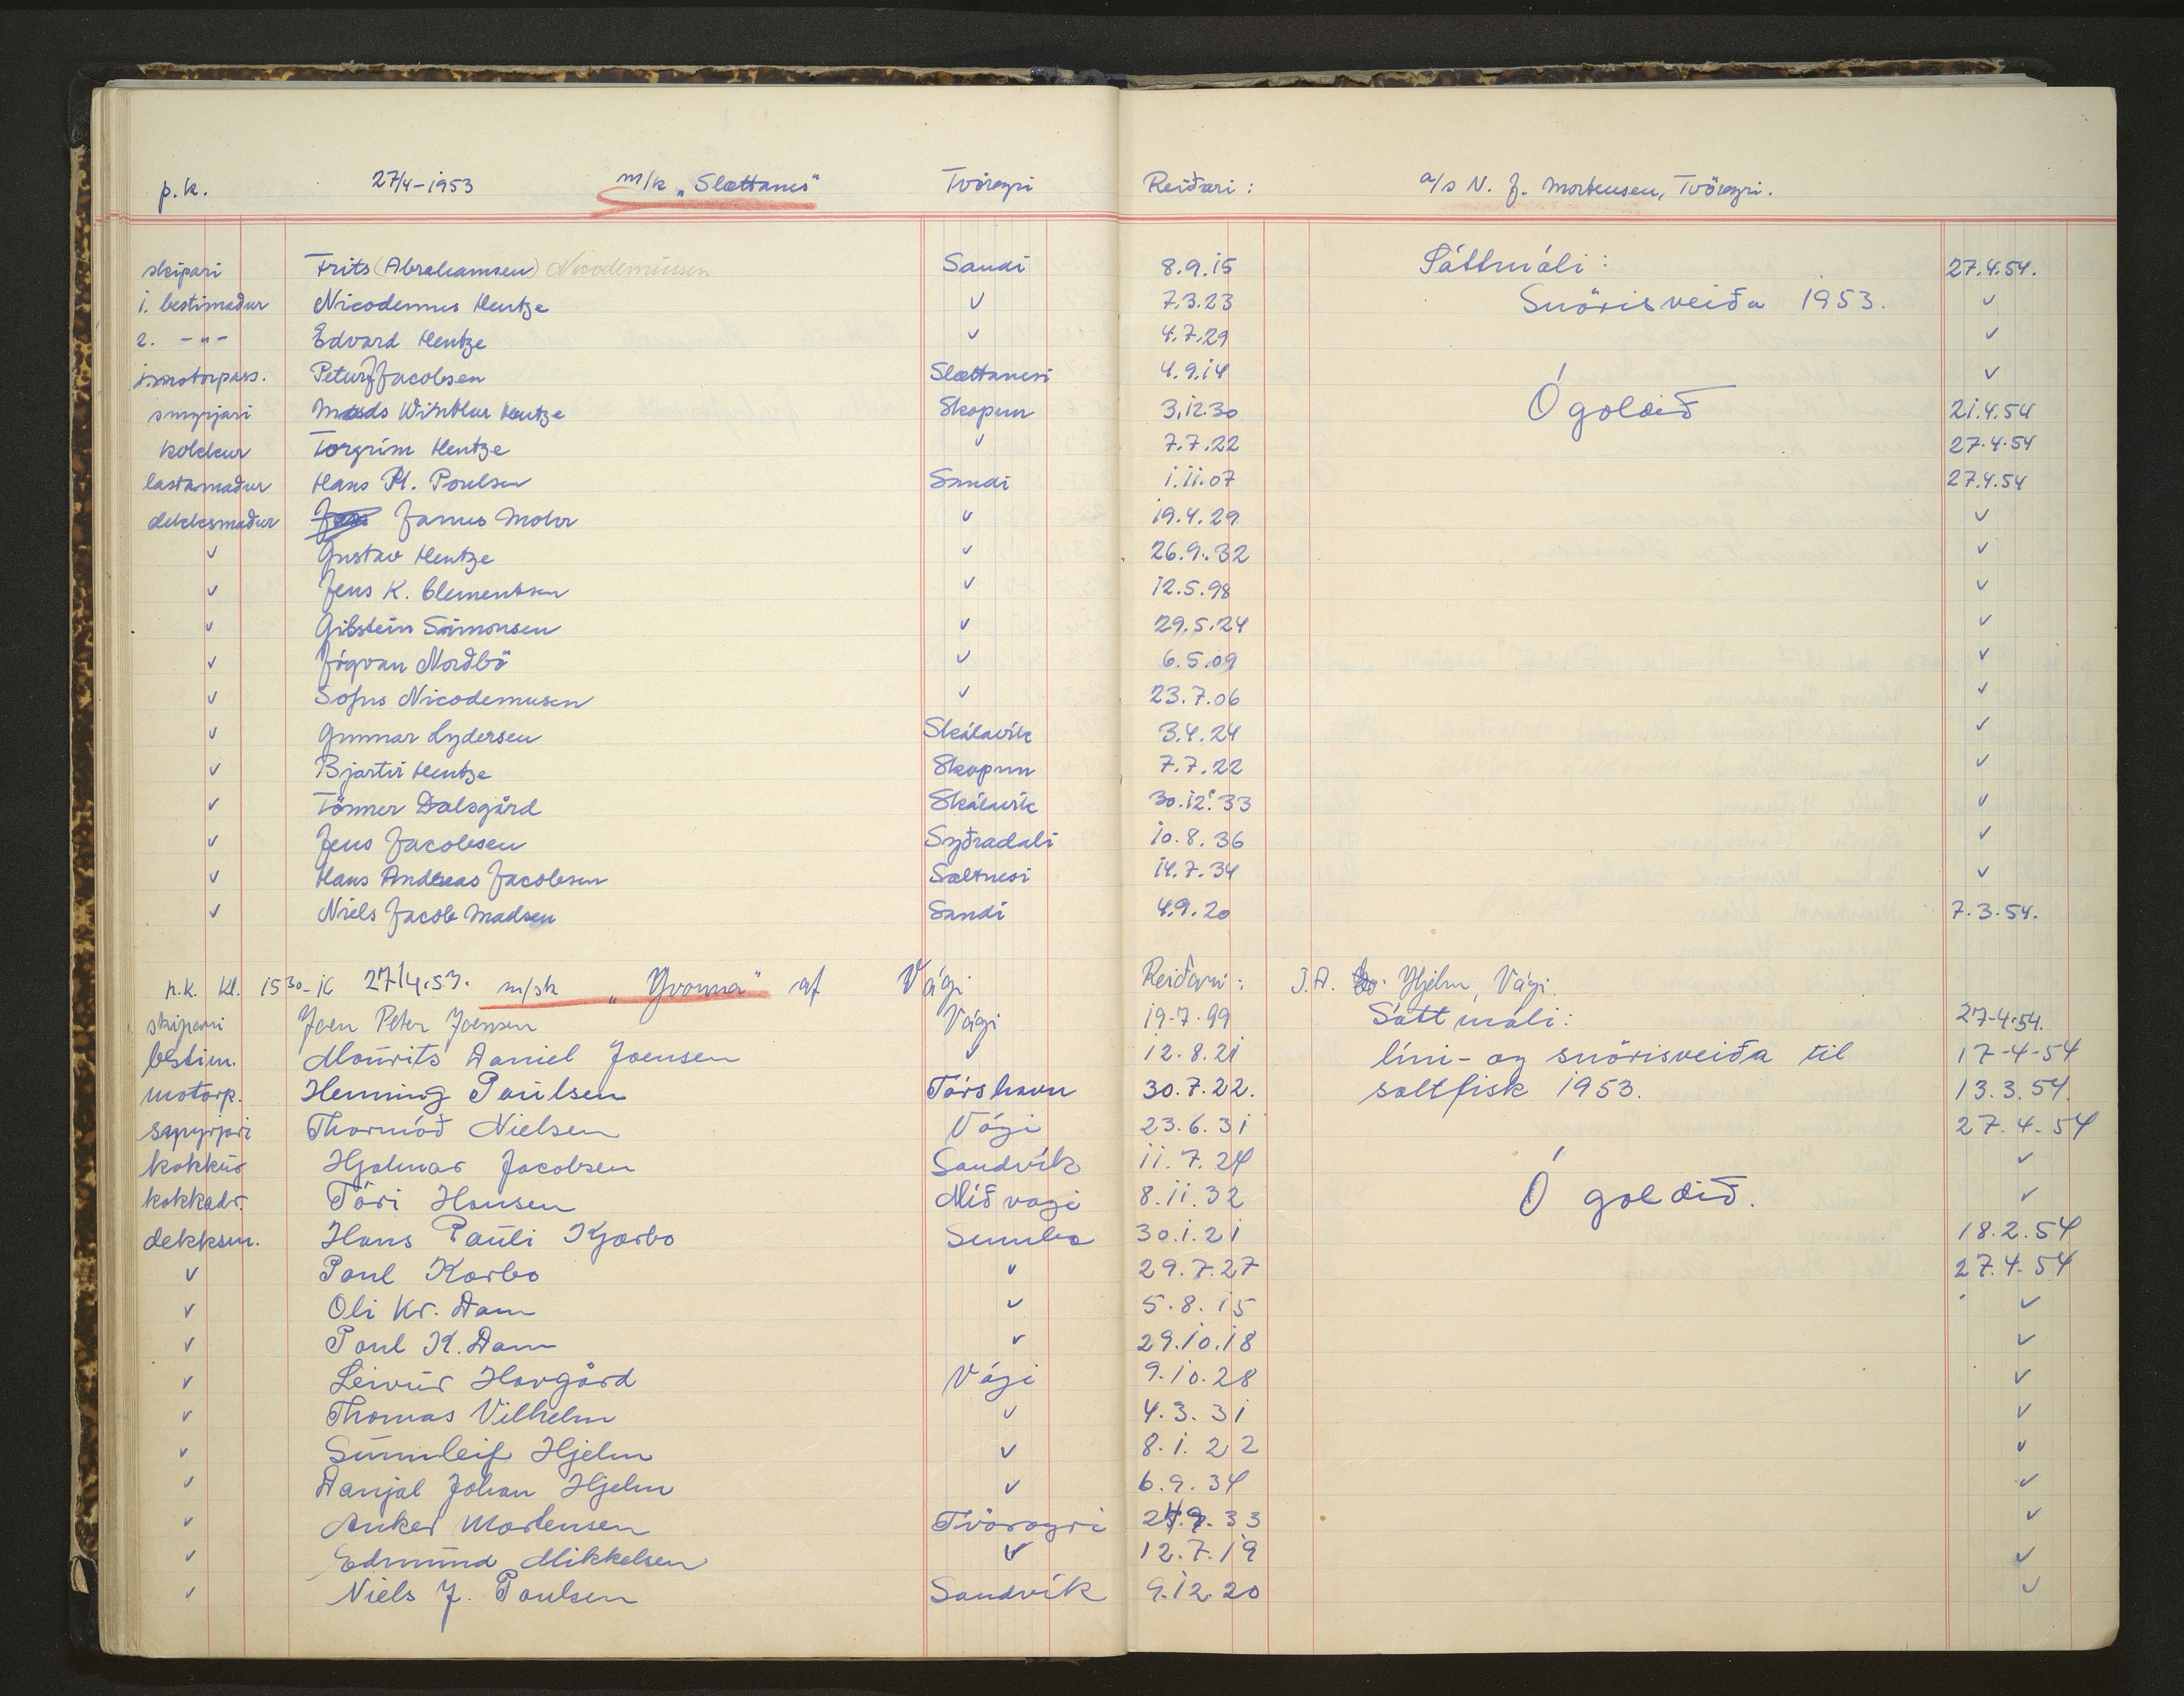 p.k. 27/4-1953 m/k „Slættanes“ Tvöroyri Reiðari: a/s N. J. Mortensen, Tvöroyri.
skipari Frits (Abrahamsen) Nicodemussen Sandi 8.9.15 Sáttmáli: 27.4.54.
1. bestimaður Nicodemus Hentze ✓ 7.3.23 Snörisveiða 1953. ✓
2. -„- Edvard Hentze ✓ 4.7.29 ✓
1. motorpass. Petur J Jacobsen Slættanesi 4.9.14 ✓
smyrjari Mads Winther Hentze Skopun 3.12.30 Ógoldið 21.4.54
kokkur Torgrim Hentze ✓ 7.7.22 27.4.54
lastamaður Hans Pl. Poulsen Sandi 1.11.07 27.4.54
dekksmaður Janus Mohr ✓ 19.4.29 ✓
✓ Gustav Hentze ✓ 26.9.32 ✓
✓ Jens K. Clementsen ✓ 12.5.98 ✓
✓ Gibstein Simonsen ✓ 29.5.24 ✓
✓ Jógvan Norðbö ✓ 6.5.09 ✓
✓ Sofus Nicodemusen ✓ 23.7.06 ✓
✓ Gunnar Lydersen Skálavík 3.4.24 ✓
✓ Bjartur Hentze Skopun 7.7.22 ✓
✓ Tönner Dalsgård Skálavík 30.12.33 ✓
✓ Jens Jacobsen Syðradali 10.8.36 ✓
✓ Hans Andreas Jacobsen Saltnesi 14.7.34 ✓
✓ Niels Jacob Madsen Sandi 4.9.20 7.3.54.
p.k. kl. 15 30-16 27/4.53. m/sk „Yvonna“ af Vági Reiðari: J.A. Hjelm, Vági.
skipari Joen Peter Joensen Vági 19-7-99 Sáttmáli: 27-4-54.
bestim. Mourits Daniel Joensen ✓ 12.8.21 líni- og snörisveiða til 17-4-54
motorp. Henning Poulsen Tórshavn 30.7.22. saltfisk 1953. 13.3.54.
smyrjari Thormóð Nielsen Vági 23.6.31 27.4.54
kokkur Hjalmar Jacobsen Sandvík 11.7.24 ✓
kokkadr. Tóri Hansen Miðvagi 8.11.32 Ó goldið. ✓
dekksm. Hans Pauli Kjærbo Sumba 30.1.21 18.2.54
✓ Poul Kærbo ✓ 29.7.27 27.4.54
✓ Oli Kr. Dam ✓ 5.8.15 ✓
✓ Poul K. Dam ✓ 29.10.18 ✓
✓ Leivur Havgård Vági 9.10.28 ✓
✓ Thomas Vilhelm ✓ 4.3.31 ✓
✓ Sunnleif Hjelm ✓ 8.1.22 ✓
✓ Danjal Johan Hjelm ✓ 6.9.34 ✓
✓ Anker Mortensen Tvöroyri 24.9.33 ✓
✓ Edmund Mikkelsen ✓ 12.7.19 ✓
✓ Niels J. Poulsen Sandvík 9.12.20 ✓